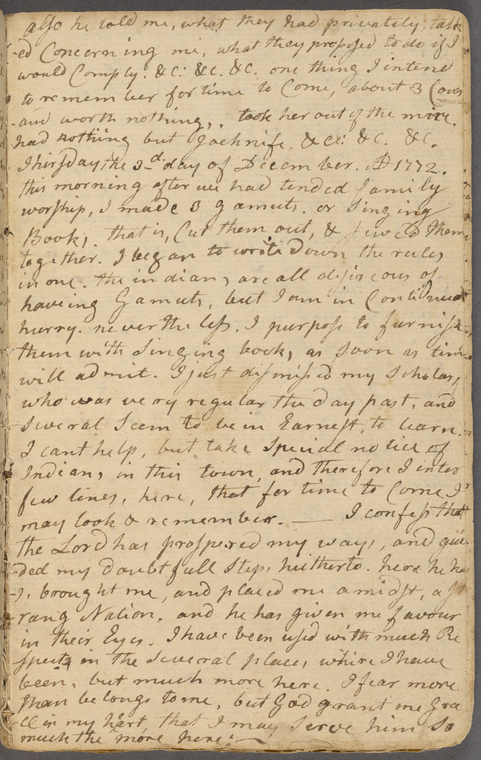 also he told me, what they had privately, talk-
-ed Concerning me, what they proposed to do if I
would Comply: &c: &c. &c. one thing I intend
to remember for time to Come, about 3 Cows
and worth nothing, took her out of the mire.
had nothing but Jacknife. &c: &c. &c.
Thirsday the 3d day of December. AD 1772.
this morning after we had tended family
worship, I made 3 gamuts. or Singing
Books. that is, Cut them out, & sewed them
together. I began to write down the rules
in one. the indians are all desireous of
haveing Gamuts, but I am in Continued
hurry. never the less. I purpose to furnish
them with Singing books, as soon as time
will admit. I just dismised my Scholars,
who was very regular the day past, and
Several Seem to be in Earnest, to learn.
I cant help, but take Special notice of
Indians in this town, and therefore I enter
few lines, here, that for time to Come I
may look & remember. — I confess that
the Lord has prospered my ways, and gui-
-ded my doubtfull Steps, hitherto. here he ha-
-s, brought me, and placed me amidst, a st-
rang Nation. and he has given me favour
in their Eyes. I have been used with much Re
spects in the Several places where I have
been. but much more here. I fear more
than belongs to me, but God grant me Gra-
ce in my hart that I may Serve him So
much the more here.